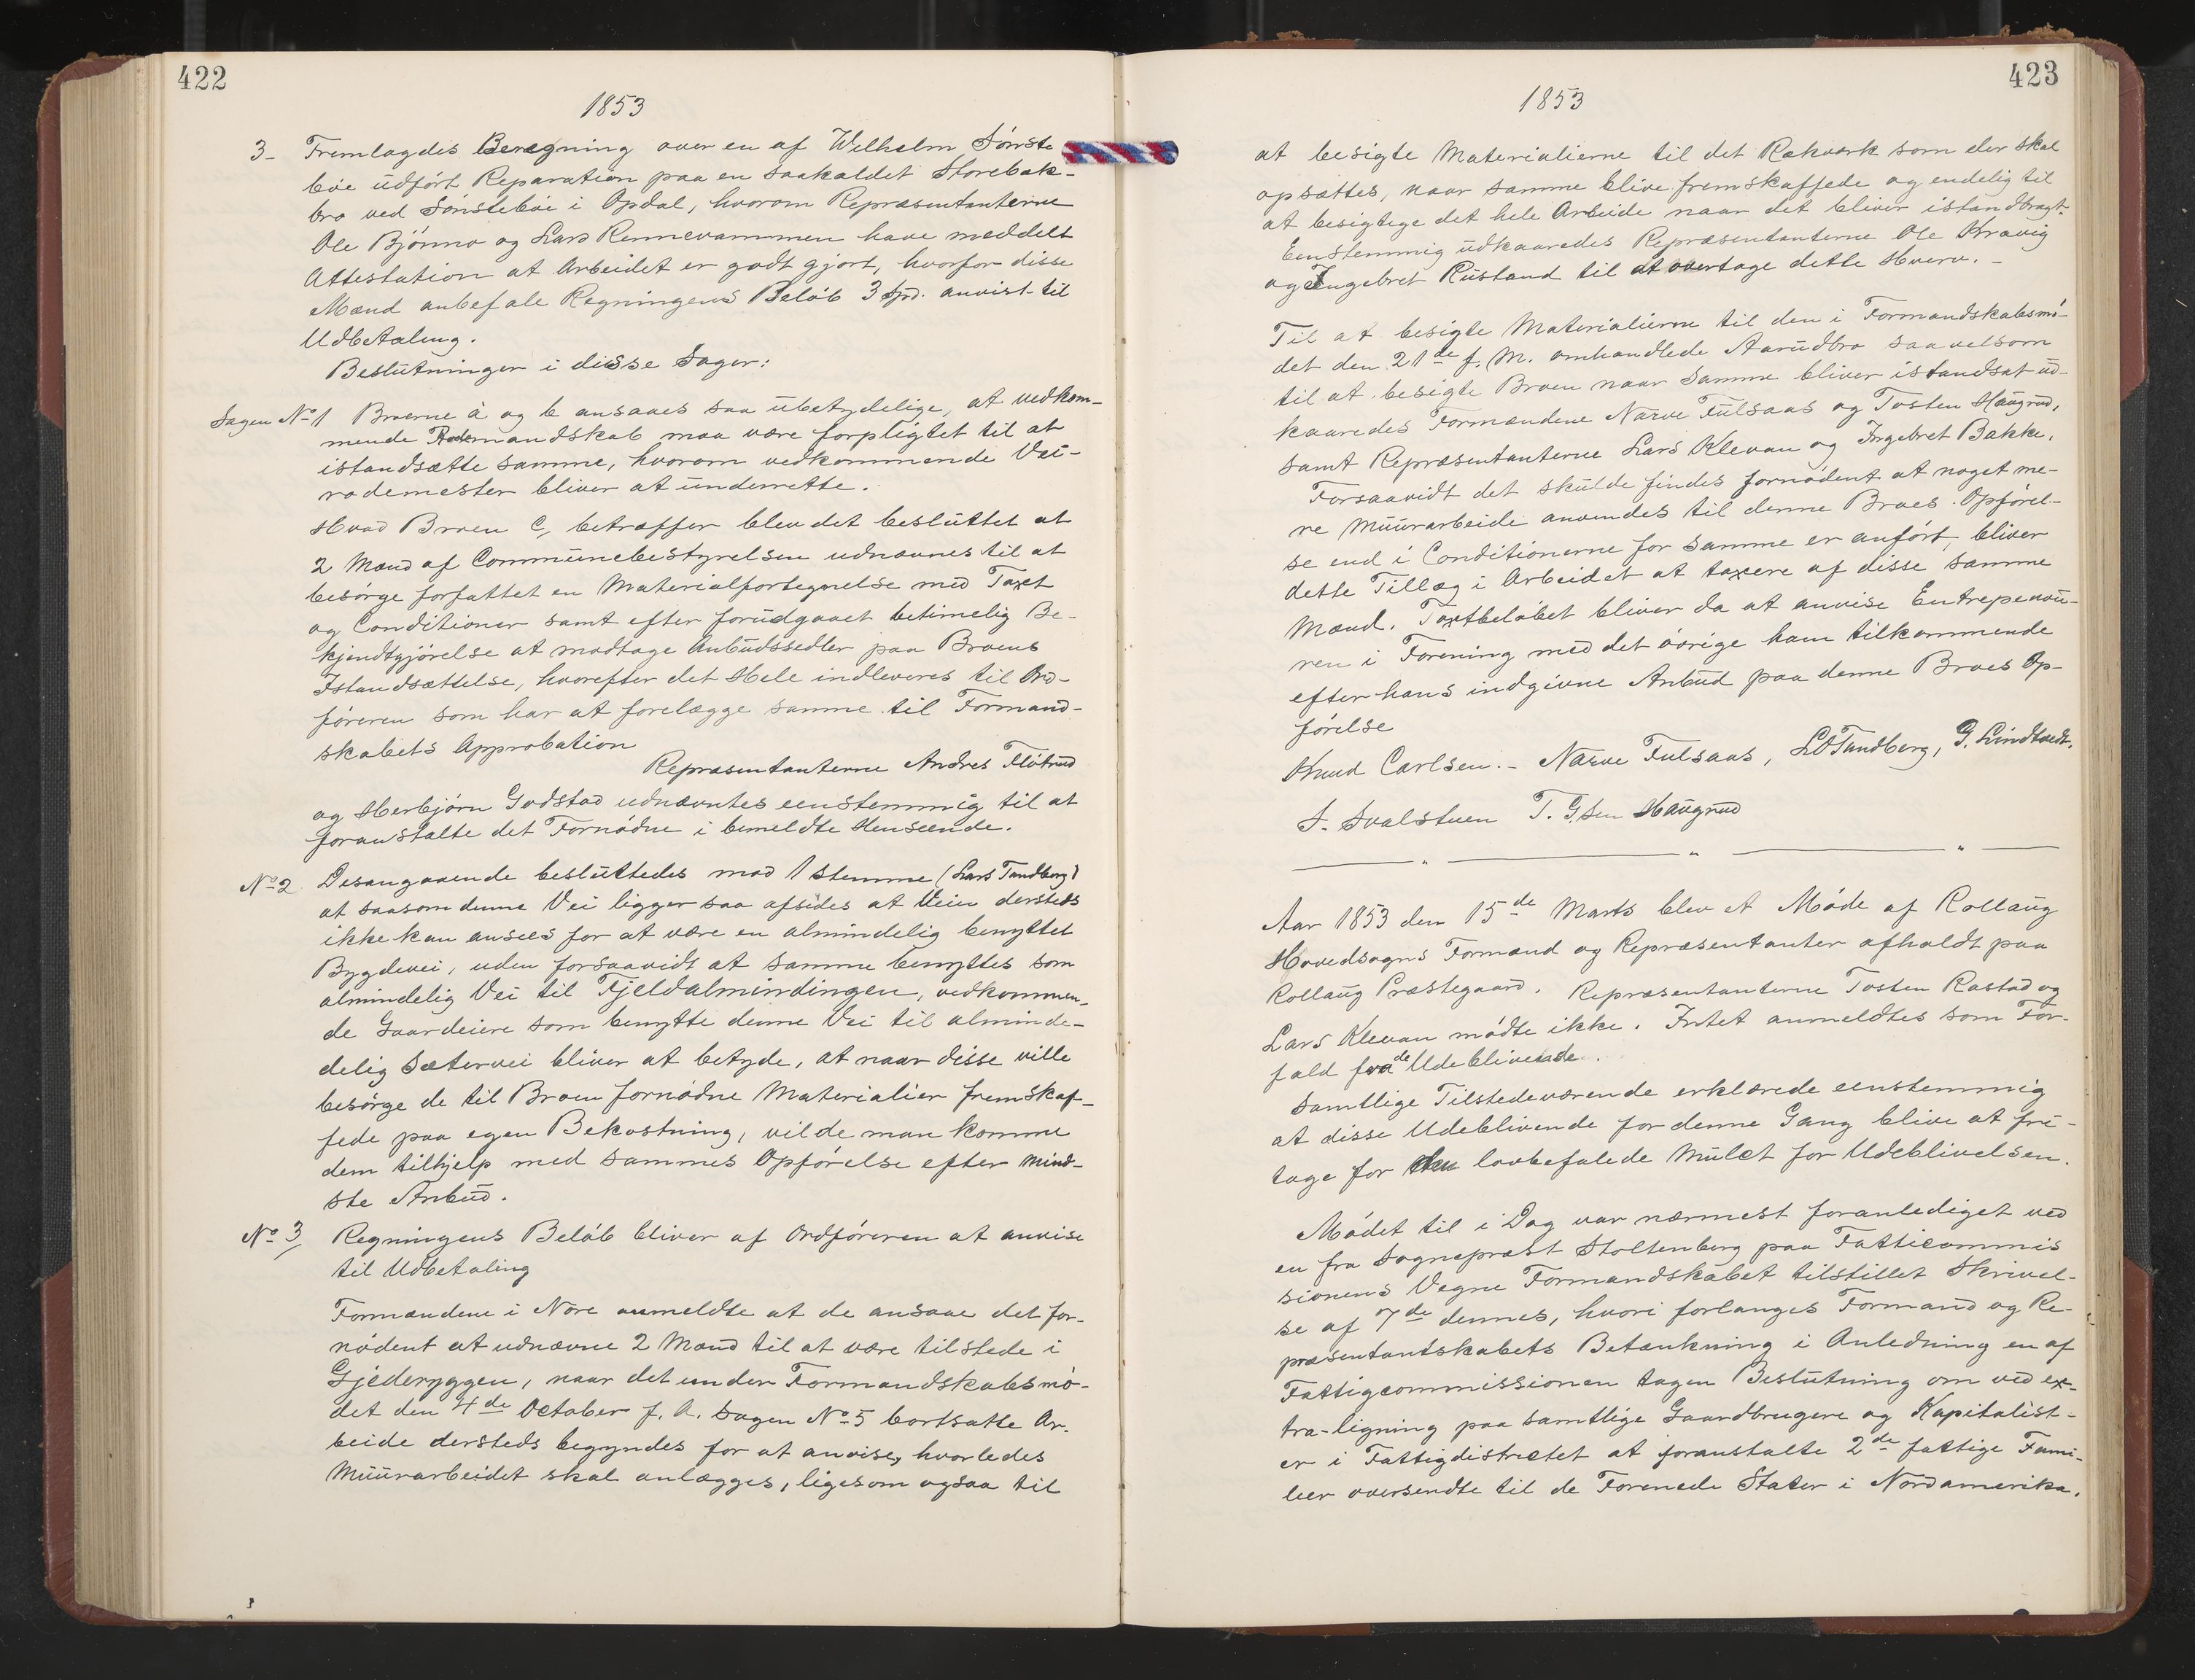 422
1853
3- Fremlagdes Beregning over en af Wilhelm Sønste
bøe udført Reparation paa en saakaldet Storebæk-
bro ved Sønstebøe i Opdal, hvorom Repræsentanterne
Ole Bjønno og Lars Rennevammen have meddelt
Attestation at Arbeidet er godt gjort, hvorfor disse
Mænd anbefale Regningens Beløb 3 Spd. anvist til
Udbetaling.
Beslutninger i disse Sager:
Sagen No 1 Broerne a og b ansaaes saa ubetydelige, at vedkom-
mende Rodemandskab maa være forpligtet til at
istandsætte samme, hvorom vedkommende Vei-
rodemester bliver at underrette.
Hvad Broen c, betræffer blev det besluttet at
2 Mænd af Communebestyrelsen udnævnes til at
besørge forfattet en Materialfortegnelse med Taxt
og Conditioner samt efter forudgaaet betimelig Be-
kjendtgjørelse at modtage Anbudssedler paa Broens
Istandsættelse, hvorefter det Hele indleveres til Ord-
føreren som har at forelægge samme til Formand-
skabets Approbation
Repræsentanterne Andres Fløtrud
og Herbjørn Godstad udnævntes eenstemmig til at
foranstalte det Fornødne i bemeldte Henseende.
No 2 Desangaaende besluttedes mod 1 stemme (Lars Tandberg)
at saasom denne Vei ligger saa afsides at Veien dersteds
ikke kan ansees for at være en almindelig benyttet
Bygdevei, uden forsaavidt at samme benyttes som
almindelig Vei til Fjeldalmindingen, vedkommen-
de Gaardeiere som benytte denne Vei til alminde-
delig Sætervei bliver at betyde, at naar disse ville
besørge de til Broen fornødne Materialier fremskaf-
fede paa egen Bekostning, vilde man komme
dem tilhjelp med sammes Opførelse efter mind-
ste Anbud.
No 3/ Regningens Beløb bliver af Ordføreren at anvise
til Udbetaling
Formændene i Nore anmeldte at de ansaae det for-
nødent at udnævne 2 Mænd til at være tilstede i
Gjederyggen, naar det under Formandskabsmø-
det den 4de October f. A. Sagen No 5 bortsatte Ar-
beide dersteds begyndes for at anvise, hvorledes
Muurarbeidet skal anlægges, ligesom ogsaa til
423
1853
at besigte Materialierne til det Rækværk som der skal
opsættes, naar samme blive fremskaffede og endelig til
at besigtige det hele Arbeide naar det bliver istandbragt.
Eenstemmig udkaaredes Repræsentanterne Ole Kravig
og Ingebret Rustand til at overtage dette Hverv. -
Til at besigte Materialierne til den i Formandskabsmø-
det den 21de f. M. omhandlede Aarudbro saavelsom
til at besigte Broen naar samme bliver istandsat ud-
kaaredes Formændene Narve Fulsaas og Tosten Haugrud,
samt Repræsentanterne Lars Klevan og Ingebret Bakke.
Forsaavidt det skulde findes fornødent at noget me-
re Muurarbeide anvendes til denne Broes Opførel-
se end i Conditionerne for samme er anført, bliver
dette Tillæg i Arbeidet at taxere af disse samme
Mænd. Taxtbeløbet bliver da at anvise Entrepenøu-
ren i Forening med det øvrige ham tilkommende
efter hans indgivne Anbud paa denne Broes Op-
førelse
Knud Carlsen. - Narve Fulsaas, LOTandberg, G. Lindtvedt.
S. Svalstuen T. G.Sen Haugrud
Aar 1853 den 15de Marts blev et Møde af Rollaug
Hovedsogns Formænd og Repræsentanter afholdt paa
Rollaug Præstegaard. Repræsentanterne Tosten Rastad og
Lars Klevan mødte ikke. Intet anmeldtes som For-
fald fra de Udeblivende.
Samtlige Tilstedeværende erklærede eenstemmig
at disse Udeblivende for denne Gang blive at fri-
tage for den lovbefalede Mulct for Udeblivelsen.
Mødet til i Dag var nærmest foranlediget ved
en fra Sognepræst Stoltenberg paa Fatticommis
sionens Vegne Formandskabet tilstillet Skrivel-
se af 7de dennes, hvori forlanges Formand og Re-
præsentantskabets Betænkning i Anledning en af
Fattigcommissionen tagen Beslutning om ved ex-
tra-ligning paa samtlige Gaardbrugere og Kapitalist-
er i Fattigdistrictet at foranstalte 2de fattige Fami-
lier oversendte til de Forenede Stater i Nordamerika.